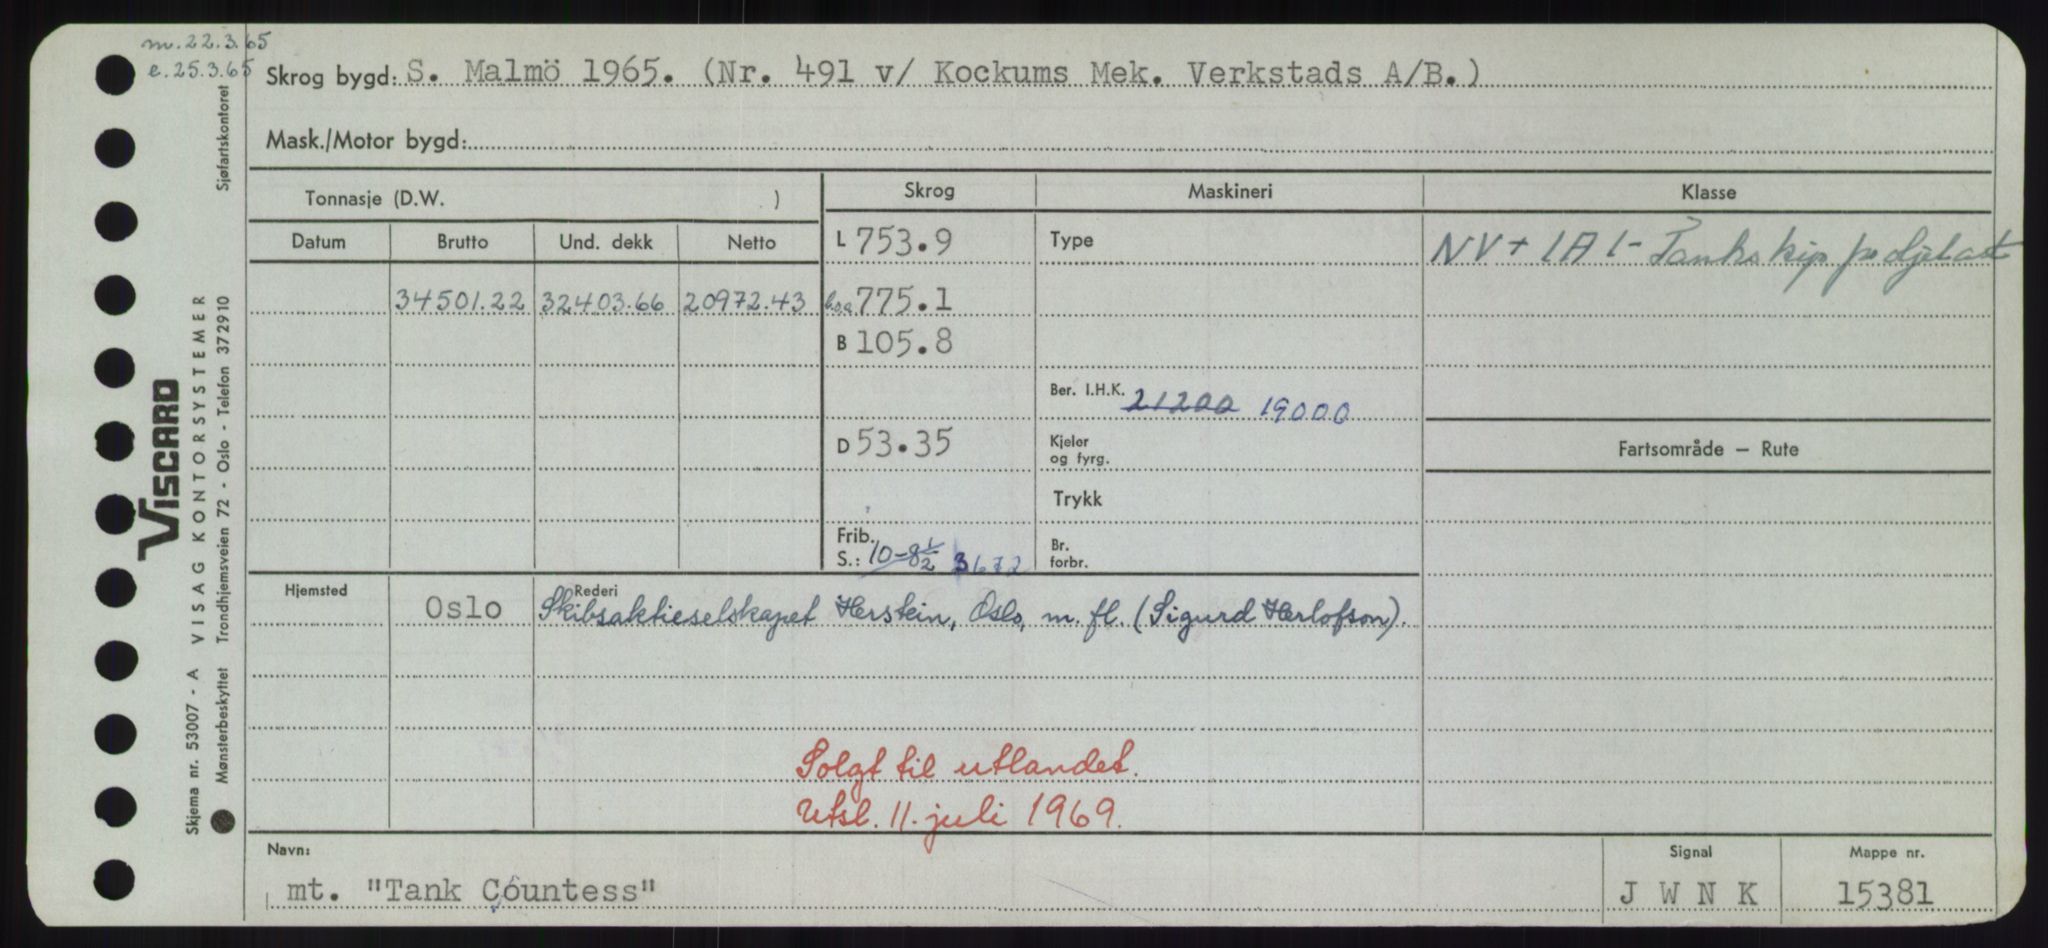 m. 22.3.65
e. 25.3.65
Skrog bygd: S. Malmö 1965. (Nr. 491 v/ Kockums Mek. Verkstads A/B.)
Mask./Motor bygd:
Tonnasje (D.W. )
Skrog
Maskineri
Klasse
Datum
Brutto
Und. dekk
Netto
L 753.9
Type
NV + 1A1 - Tankskip
34501.22
32403.66
20972.43
l.o.a 775.1
B 105.8
Ber. I.H.K. 21200 19000
D 53.35
Kjeler
og fyrg.
Fartsområde — Rute
Trykk
Frib.
S.: 10-8½ 3672
Br.
forbr.
Hjemsted
Rederi
Oslo
Skibsaktieselskapet Herstein, Oslo, m. fl. (Sigurd Herlofson).
Solgt til utlandet.
Utsl. 11. juli 1969.
Navn:
mt. "Tank Countess"
Signal
J W N K
Mappe nr.
15381
Sjøfartskontoret
VISCARD
VISAG KONTORSYSTEMER
Trondhjemsveien 72 - Oslo - Telefon 372910
Skjema nr. 53007 - A
Mønsterbeskyttet